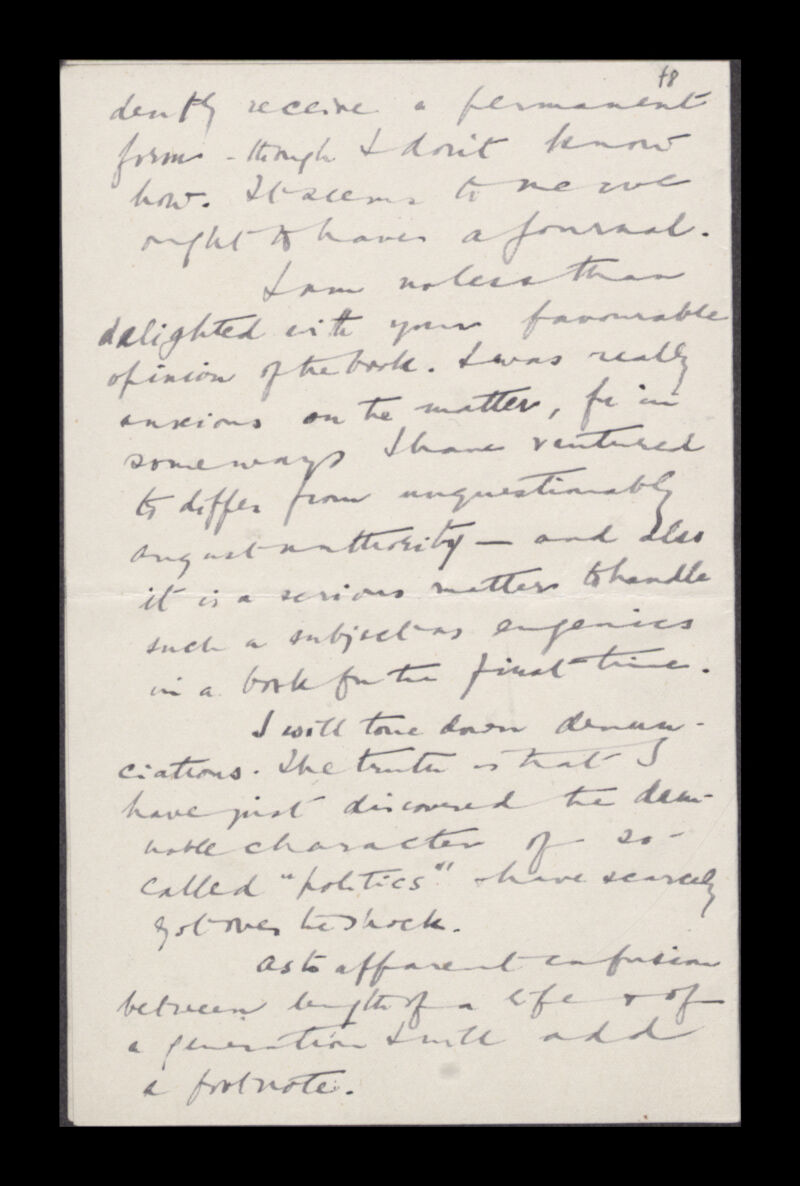 48
dently receive a permanent
form - though I don't know
how. It seems to me we
ought to have a journal.
I am no less than
delighted with your favourable
opinion of the book. I was really
anxious on the matter, for in
some ways I have ventured
to differ from unquestionably
august authority — and also
it is a serious matter to handle
such a subject as eugenics
in a book for the first time.
I will tone down denun-
ciations. The truth is that I
have just discovered the dam-
nable character of so-
called "politics" & have scarcely
got over the shock.
As to apparent confusion
between length of a life & of
a generation I will add
a footnote.